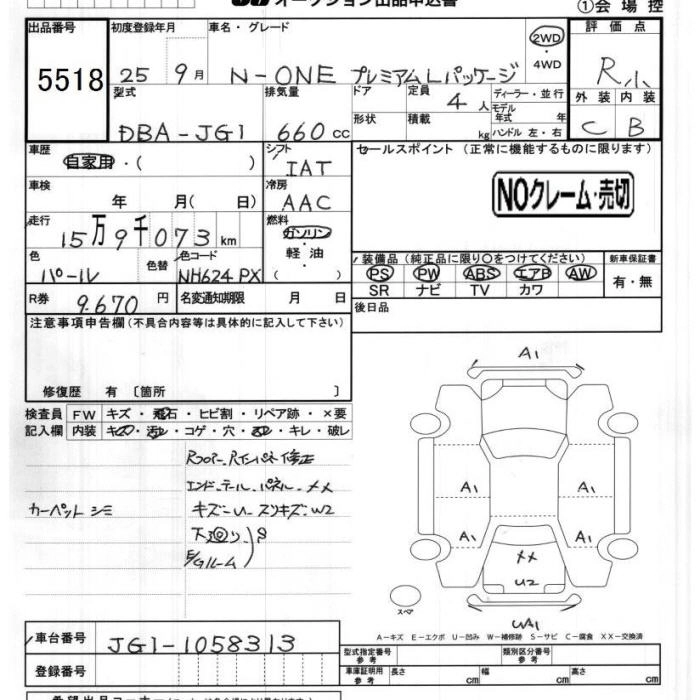 オークション出品申込書
①会場控
出品番号 初度登録年月 車名・グレード 評価点
5518 25 9月 N-ONE プレミアムLパッケージ 2WD・4WD R小
型式 排気量 ドア 定員 4人 ディーラー・並行 外装 内装
モデル年式 年
DBA-JG1 660cc 形状 積載 kg ハンドル 左・右 C B
車歴 シフト セールスポイント (正常に機能するものに限ります)
自家用・( ) IAT
車検 冷房
年 月(日) AAC NOクレーム・売切
走行 燃料
15万9千073km ガソリン・軽油・( )
色 色替 色コード 装備品(純正品に限り○をつけてください) 新車保証書
パール NH624PX PS PW ABS エアB AW 有・無
SR ナビ TV カワ
R券 9.670円 名変通知期限 月 日 後日品
注意事項申告欄(不具合内容等は具体的に記入して下さい)
修復歴 有 〔箇所 〕
検査員 FW キズ・飛石・ヒビ割・リペア跡・×要
記入欄 内装 キズ・汚れ・コゲ・穴・・キレ・破レ
修正
エンド.テール.パネル-××
カーペットシミ キズ-U-スリキズ-W2
下廻り S
E/Gルーム
A1
A1 A1
A1 A1
××
U2
スペア
UA1
A-キズ E-エクボ U-凹み W-補修跡 S-サビ C-腐食 XX-交換済
車台番号 JG1-1058313
登録番号
型式指定番号 参考 類別区分番号 参考
車庫証明用 参考 長さ cm 幅 cm 高さ cm